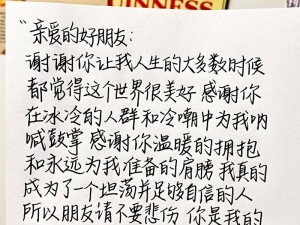 GUINNESS
“亲爱的好朋友：
谢谢你让我人生的大多数时候
都觉得这个世界很美好 感谢你
在冰冷的人群和冷嘲中为我呐
喊鼓掌 感谢你温暖的拥抱
和永远为我准备的肩膀 我真的
成为了一个坦荡并足够自信的人
所以朋友请不要悲伤 你是我的